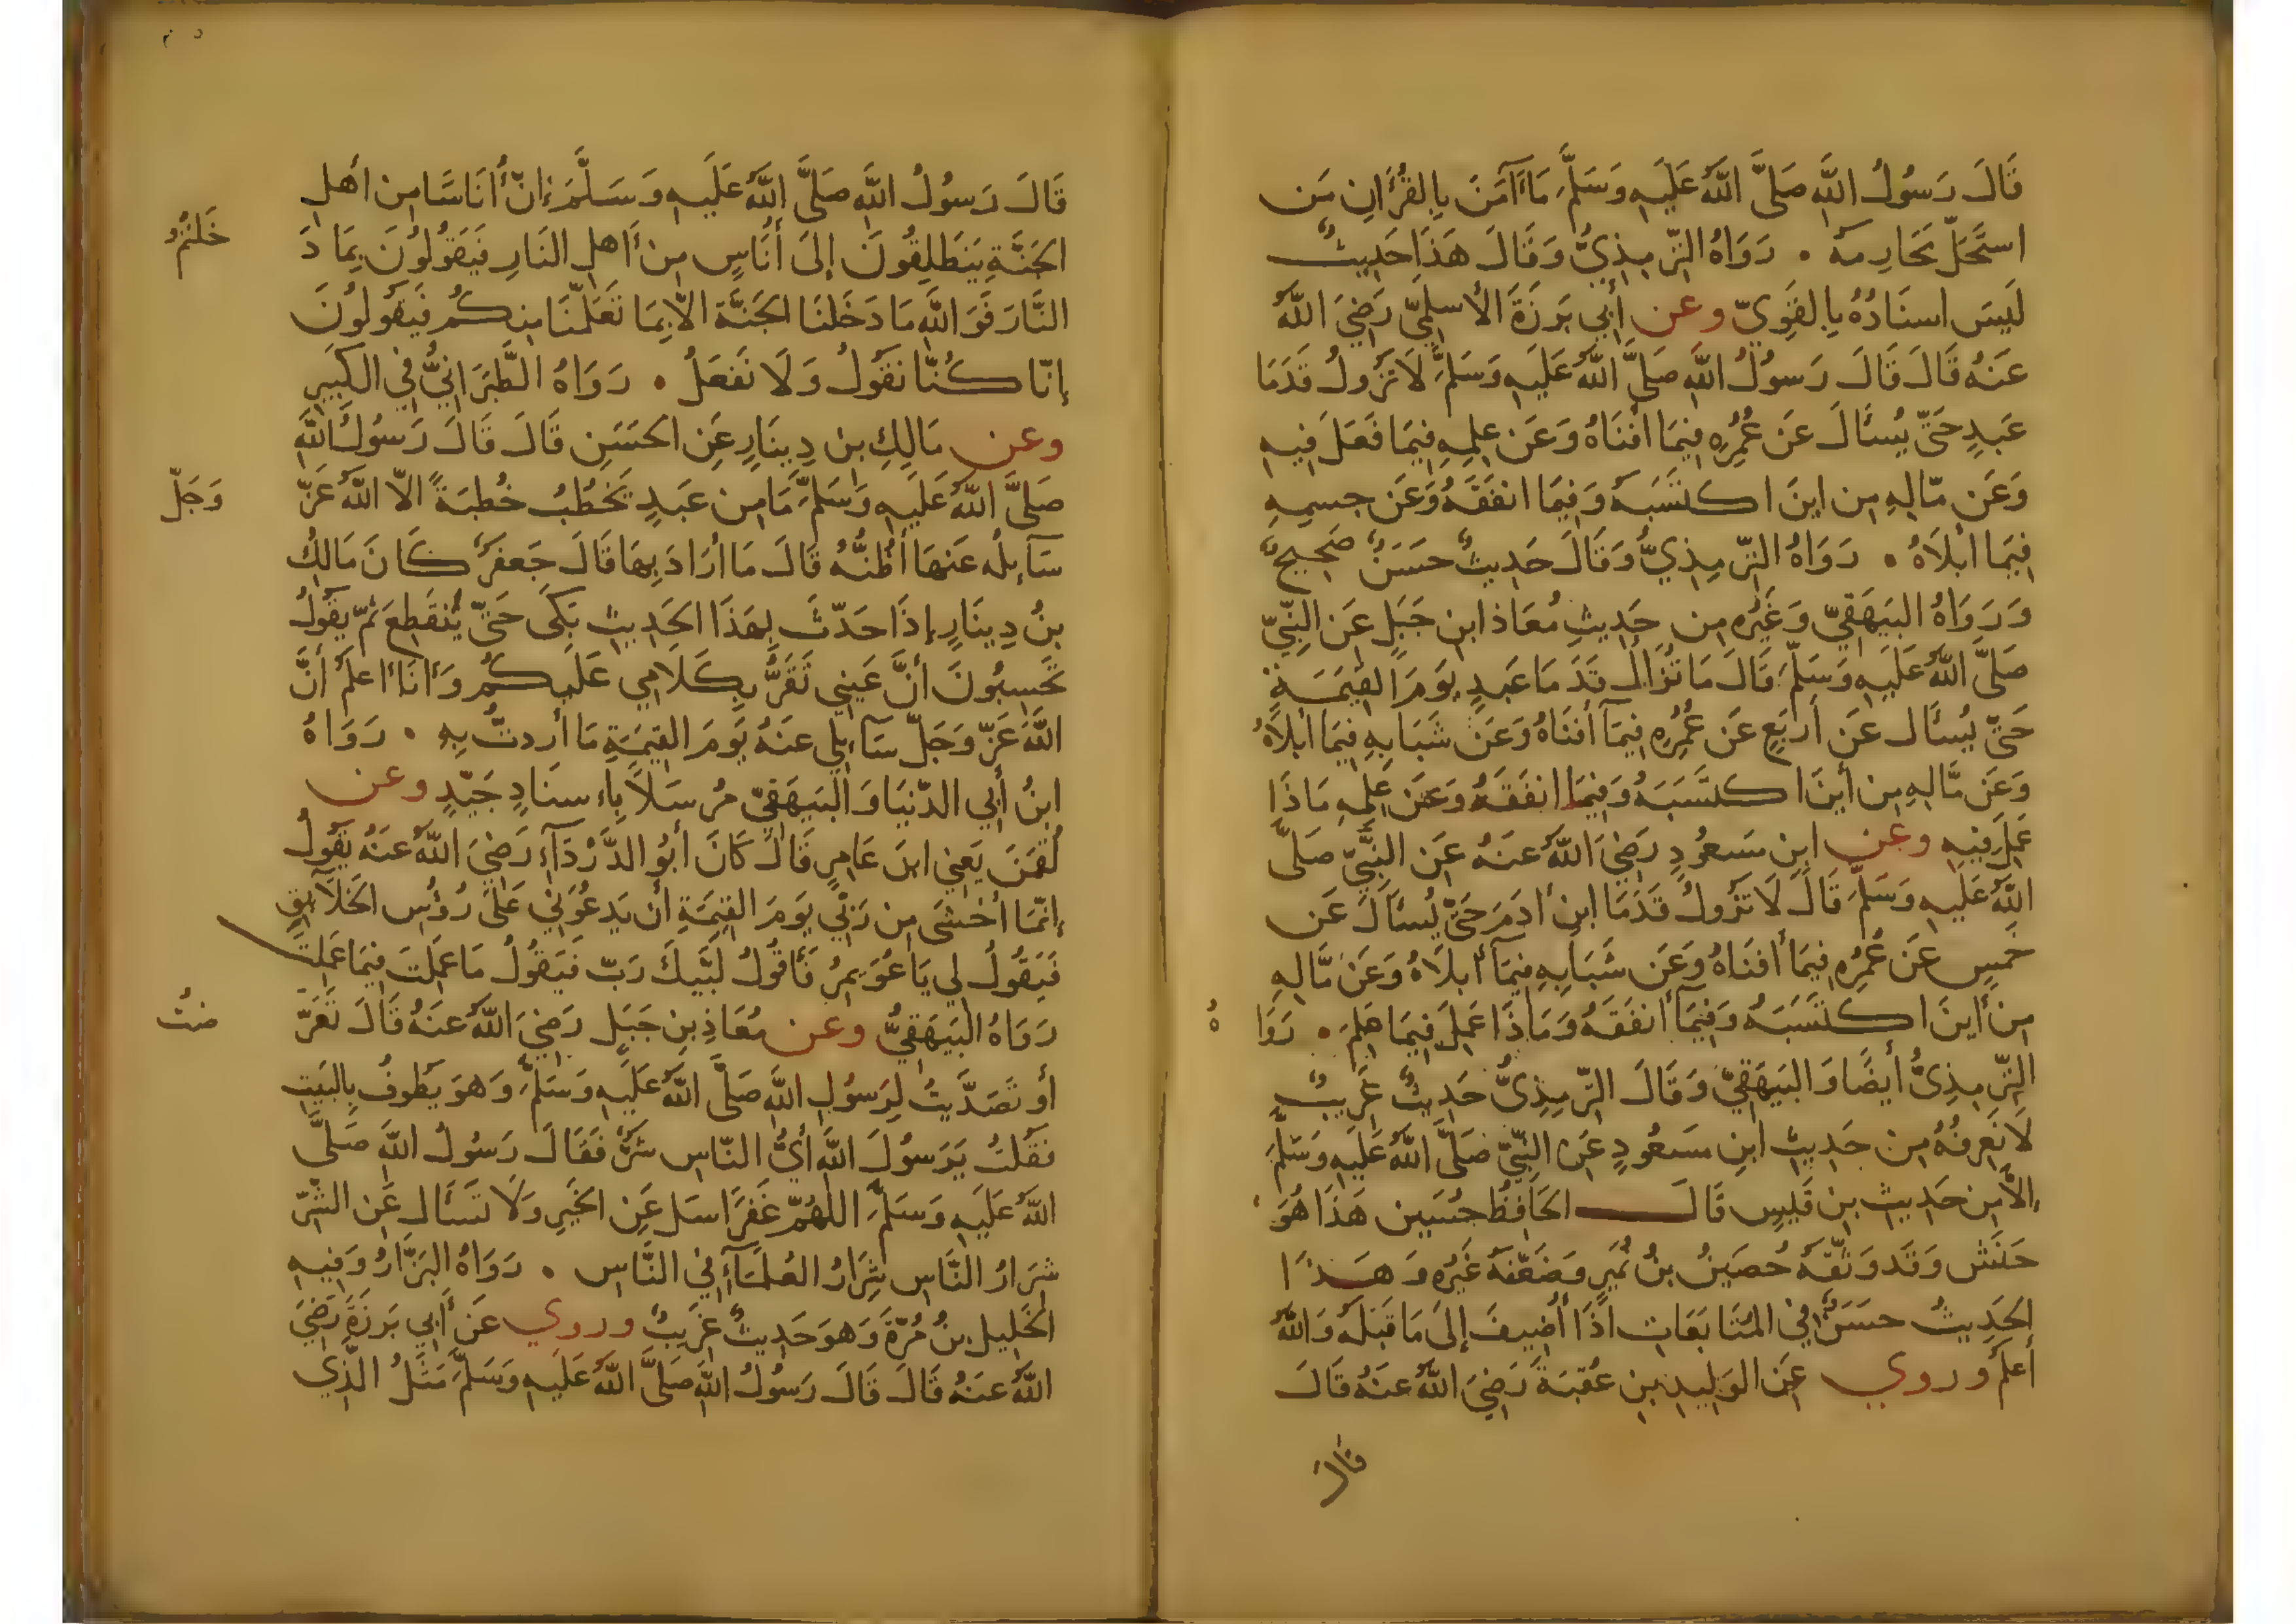 قَالَ رَسُولُ اللَّهِ صَلَّى اللَّهُ عَلَيهِ وَسَلَّمَ مَاآمَنَ بِالقُرْأَنِ مَن
استَحَلّ مَحَارِمَهُ . رَوَاهُ التِّرمِذِيُّ وَقَالَ هَذَا حَدِيثٌ
لَيسَ اسنَادُهُ بِالقَوِيّ وعن أَبِي بَرزَةَ الأَسلَمِيِّ رَضِيَ اللَّهُ
عَنهُ قَالَ قَالَ رَسولُ اللَّهِ صَلَّى اللَّهُ عَلَيهِ وَسَلَّمَ لَا تَزُولُ قَدَمَا
عَبدٍ حَتّى يُسئَالَ عَن عُمُرِهِ فِيمَا افنَاهُ وَعَن عِلمِهِ فِيمَا فَعَلَ فِيهِ
وَعَن مّالِهِ مِن اينَ اكتَسَبَهُ وَفِيمَا انفَقَهُ وَعَن جِسمِهِ
فِيمَا أَبلَاهُ . رَوَاهُ التِّرمِذِيُّ وَقَالَ حَدِيثٌ حَسَنٌ صَحِيحٌ
وَرَوَاهُ البَيهَقِيّ وَغَيرُهُ مِن حَدِيثِ مُعَاذ ابنِ جَبَلٍ عَنِ النَّبِيّ
صَلَّى اللَّهُ عَلَيهِ وَسَلَّمَ قَالَ مَا تُزَالُ قَدَمَا عَبدٍ يَومَ القِيَمَةِ
حَتّى يُسئَالَ عَن أَربَعٍ عَن عُمُرِهِ فِيمَا أَفنَاهُ وَعَن شَبَابِهِ فِيمَا أَبلَاهُ
وَعَن مَّالِهِ مِن أَينَ اكتَسَبَهُ وَفِيمَا انفَقَهُ وَعَن عِلمِهِ مَاذَا
عَمِلَ فِيهِ وعن ابنِ مَسعُودٍ رَضِيَ اللَّهُ عَنهُ عَنِ النَّبِيِّ صَلَّى
اللَّهُ عَلَيهِ وَسَلَّمَ قَالَ لَا تَزُولُ قَدَمَا ابنِ أَدَمَ حَتّى يُسئَالَ عَن
خَمسٍ عَن عُمُرِهِ فِيمَا أَفنَاهُ وَعَن شَبَابِهِ فِيمَا أَبلَاهُ وَعَن مَّالِهِ
مِن أَينَ اكتَسَبَهُ وَفِيمَا أَنفَقَهُ وَمَاذَا عَمِلَ فِيمَا عَلِمَ . رَوَا هُ
التِّرمِذِيُّ أَيضًا وَالبَيهَقِيّ وَقَالَ التِّرمِذِيُّ حَدِيثٌ غَرِيبٌ
لَا نَعرِفُهُ مِن حَدِيثِ ابنِ مَسعُودٍ عَنِ النَّبِيِّ صَلَّى اللَّهُ عَلَيهِ وَسَلَّمَ
إِلَّا مِن حَدِيثِ بنِ قَيسٍ قَالَ الحَافِظُ حُسَين هَذَا هُوَ
حَنَش وَقَد وَثَّقَهُ حُصَينُ بنُ نُمَيرٍ وَضَعَّفَهُ غَيرُهُ وَهَذَا
الحَدِيثُ حَسَنٌ فِي المُتَابَعَاتِ اذَا أُضِيفَ إِلَى مَا قَبلَهُ وَاللَّهُ
أَعلَمُ وروي عَنِ الوَلِيدِ بنِ عُقبَةَ رَضِيَ اللَّهُ عَنهُ قَالَ
قال
قَالَ رَسُولُ اللَّهِ صَلَّى اللَّهُ عَلَيهِ وَسَلَّمَ إِنّ أُنَاسًا مِن اهلِ
الجَنَّةِ يَنطَلِقُونَ إِلَى أُنَاسٍ مِن أَهلِ النَارِ فَيَقُولُونَ بِمَا دَ
خَلتُمُ
النَّارَ فَوَ اللَّهِ مَا دَخَلنَا الجَنَّةَ الاَّ بِمَا تَعَلَّمنَا مِنكُم فَيَقُولُونَ
إنّا كُنّا نَقُولُ وَلَا نَفعَلُ . رَوَاهُ الطَّبَرَانِيُّ فِي الكَبِيرِ
وعن مَالِكِ بنِ دِينَارٍ عَنِ الحَسَنِ قَالَ قَالَ رَسُولُ اللَّهِ
صَلَّى اللَّهُ عَلَيهِ وَسَلَّمَ مَا مِن عَبدٍ يَخطُبُ خُطبَةً الاّ اللَّهُ عَزّ
وَجَلّ
سَآئِلُه عَنهَا أَظُنُّهُ قَالَ مَا أَرَادَ بِهَا قَالَ جَعفَرٌ كَانَ مَالِكُ
بنُ دِينَارٍ إِذَا حَدّثَ بِهَذَا الحَدِيثِ بَكَى حَتّى يَنقَطِعَ ثُمّ يَقُولُ
تَحسِبُونَ أَنَّ عَينِي تَقَرُّ بِكَلَامِي عَلَيكُم وَأَنَا أَعلَمُ أَنَّ
اللَّهَ عَزّ وَجَلّ سَآئِلِي عَنهُ يَومَ القِيَمَةِ مَا أَردتُّ بِهِ . رَوَاهُ
ابنُ أَبِي الدّنيَا وَالبَيهَقِيّ مُرسَلًا بِاءسنَادٍ جَيّدٍ وعن
لُقمَنَ يَعنِي ابنَ عَامِرٍ قَالَ كَانَ أَبُو الدَّرْدَآءِ رَضِيَ اللَّهُ عَنهُ يَقُولُ
إِنّمَا أَخشَى مِن رَبِّي يَومَ القِيَمَةِ أَن يَدعُوَنِي عَلَى رُؤُسِ الخَلَآئِقِ
فَيَقُولُ لِي يَا عُوَيمِرُ فَأَقُولُ لَبَّيكَ رَبّ فَيَقُولُ مَا عَمِلتَ فِيمَا عَلِمتَ
رَوَاهُ البَيهَقِيُّ وعن مُعَاذِ بنِ جَبَلٍ رَضِيَ اللَّهُ عَنهُ قَالَ تَعَرّ
ضتُ
أَو تَصَدَّيتُ لِرَسُولِ اللَّهِ صَلَّى اللَّهُ عَلَيهِ وَسَلَّمَ وَهوَ يَطُوفُ بِالبَيتِ
فَقُلتُ يَرَسُولَ اللَّهِ أَيُّ النّاسِ شَرٌّ فَقَالَ رَسُولُ اللَّهِ صَلَّى
اللَّهُ عَلَيهِ وَسَلَّمَ اللَّهُمّ غَفرًا سَل عَنِ الخَيرِ وَلَا تَسئَال عَنِ الشّرّ
شِرَارُ النَّاسِ شِرَارُ العُلَمَآءِ فِي النَّاسِ . رَوَاهُ البَزَّارُ وَفِيهِ
الخَلِيلُ بنُ مُرّةَ وَهوَ حَدِيثٌ غَرِيبٌ وروي عَن أَبِي بَرزَةَ رَضِيَ
اللَّهُ عَنهُ قَالَ قَالَ رَسُولُ اللَّهِ صَلَّى اللَّهُ عَلَيهِ وَسَلَّمَ مَثَلُ الَّذِي